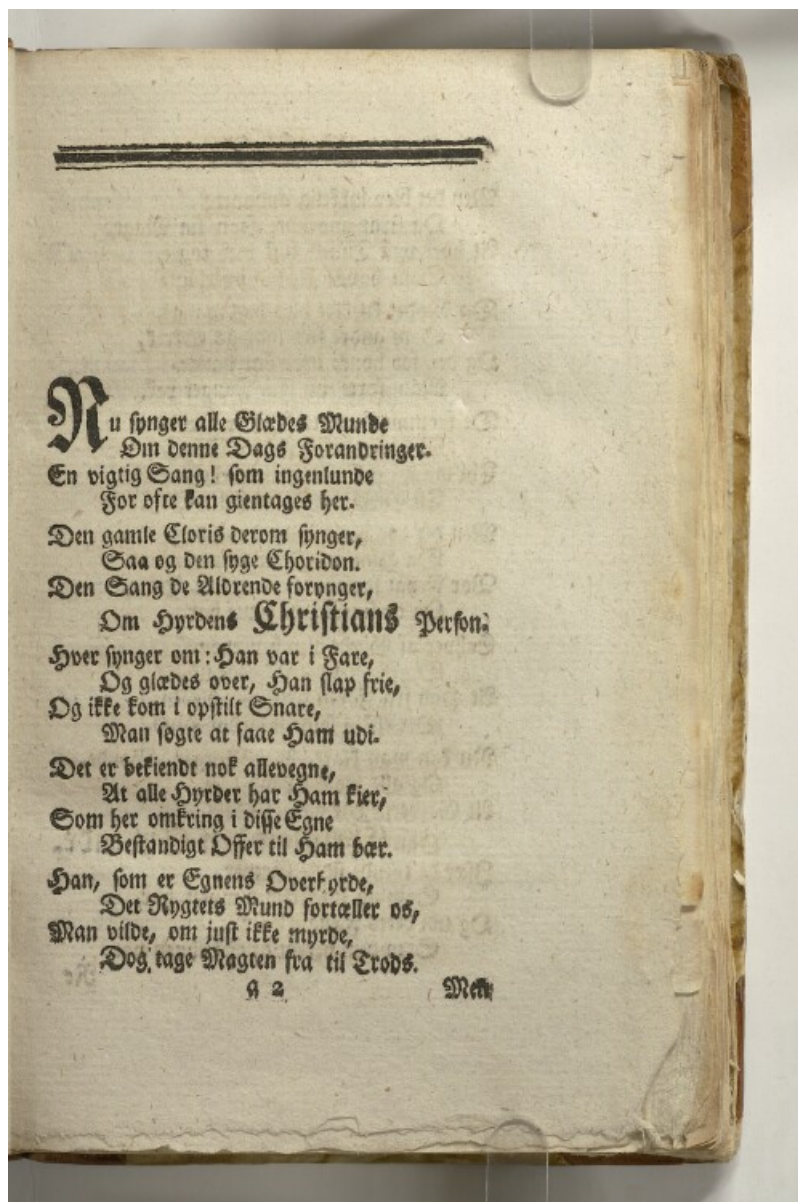 Nu synger alle Glædes Munde
Om denne Dags Forandringer.
En vigtig Sang! som ingenlunde
For ofte kan gientages her.
Den gamle Cloris derom synger,
Saa og den syge Choridon.
Den Sang de Aldrende forynger,
Om Hyrdens Christians Person.
Hver synger om: Han var i Fare,
Og glædes over, Han slap frie,
Og ikke kom i opstilt Snare,
Man søgte at faae Ham udi.
Det er bekiendt nok allevegne,
At alle Hyrder har Ham kier,
Som her omkring i disse Egne
Bestandigt Offer til Ham bær.
Han, som er Egnens Overhyrde,
Det Rygtets Mund fortæller os,
Man vilde, om just ikke myrde,
Dog tage Magten fra til Trods.
a 2 Men